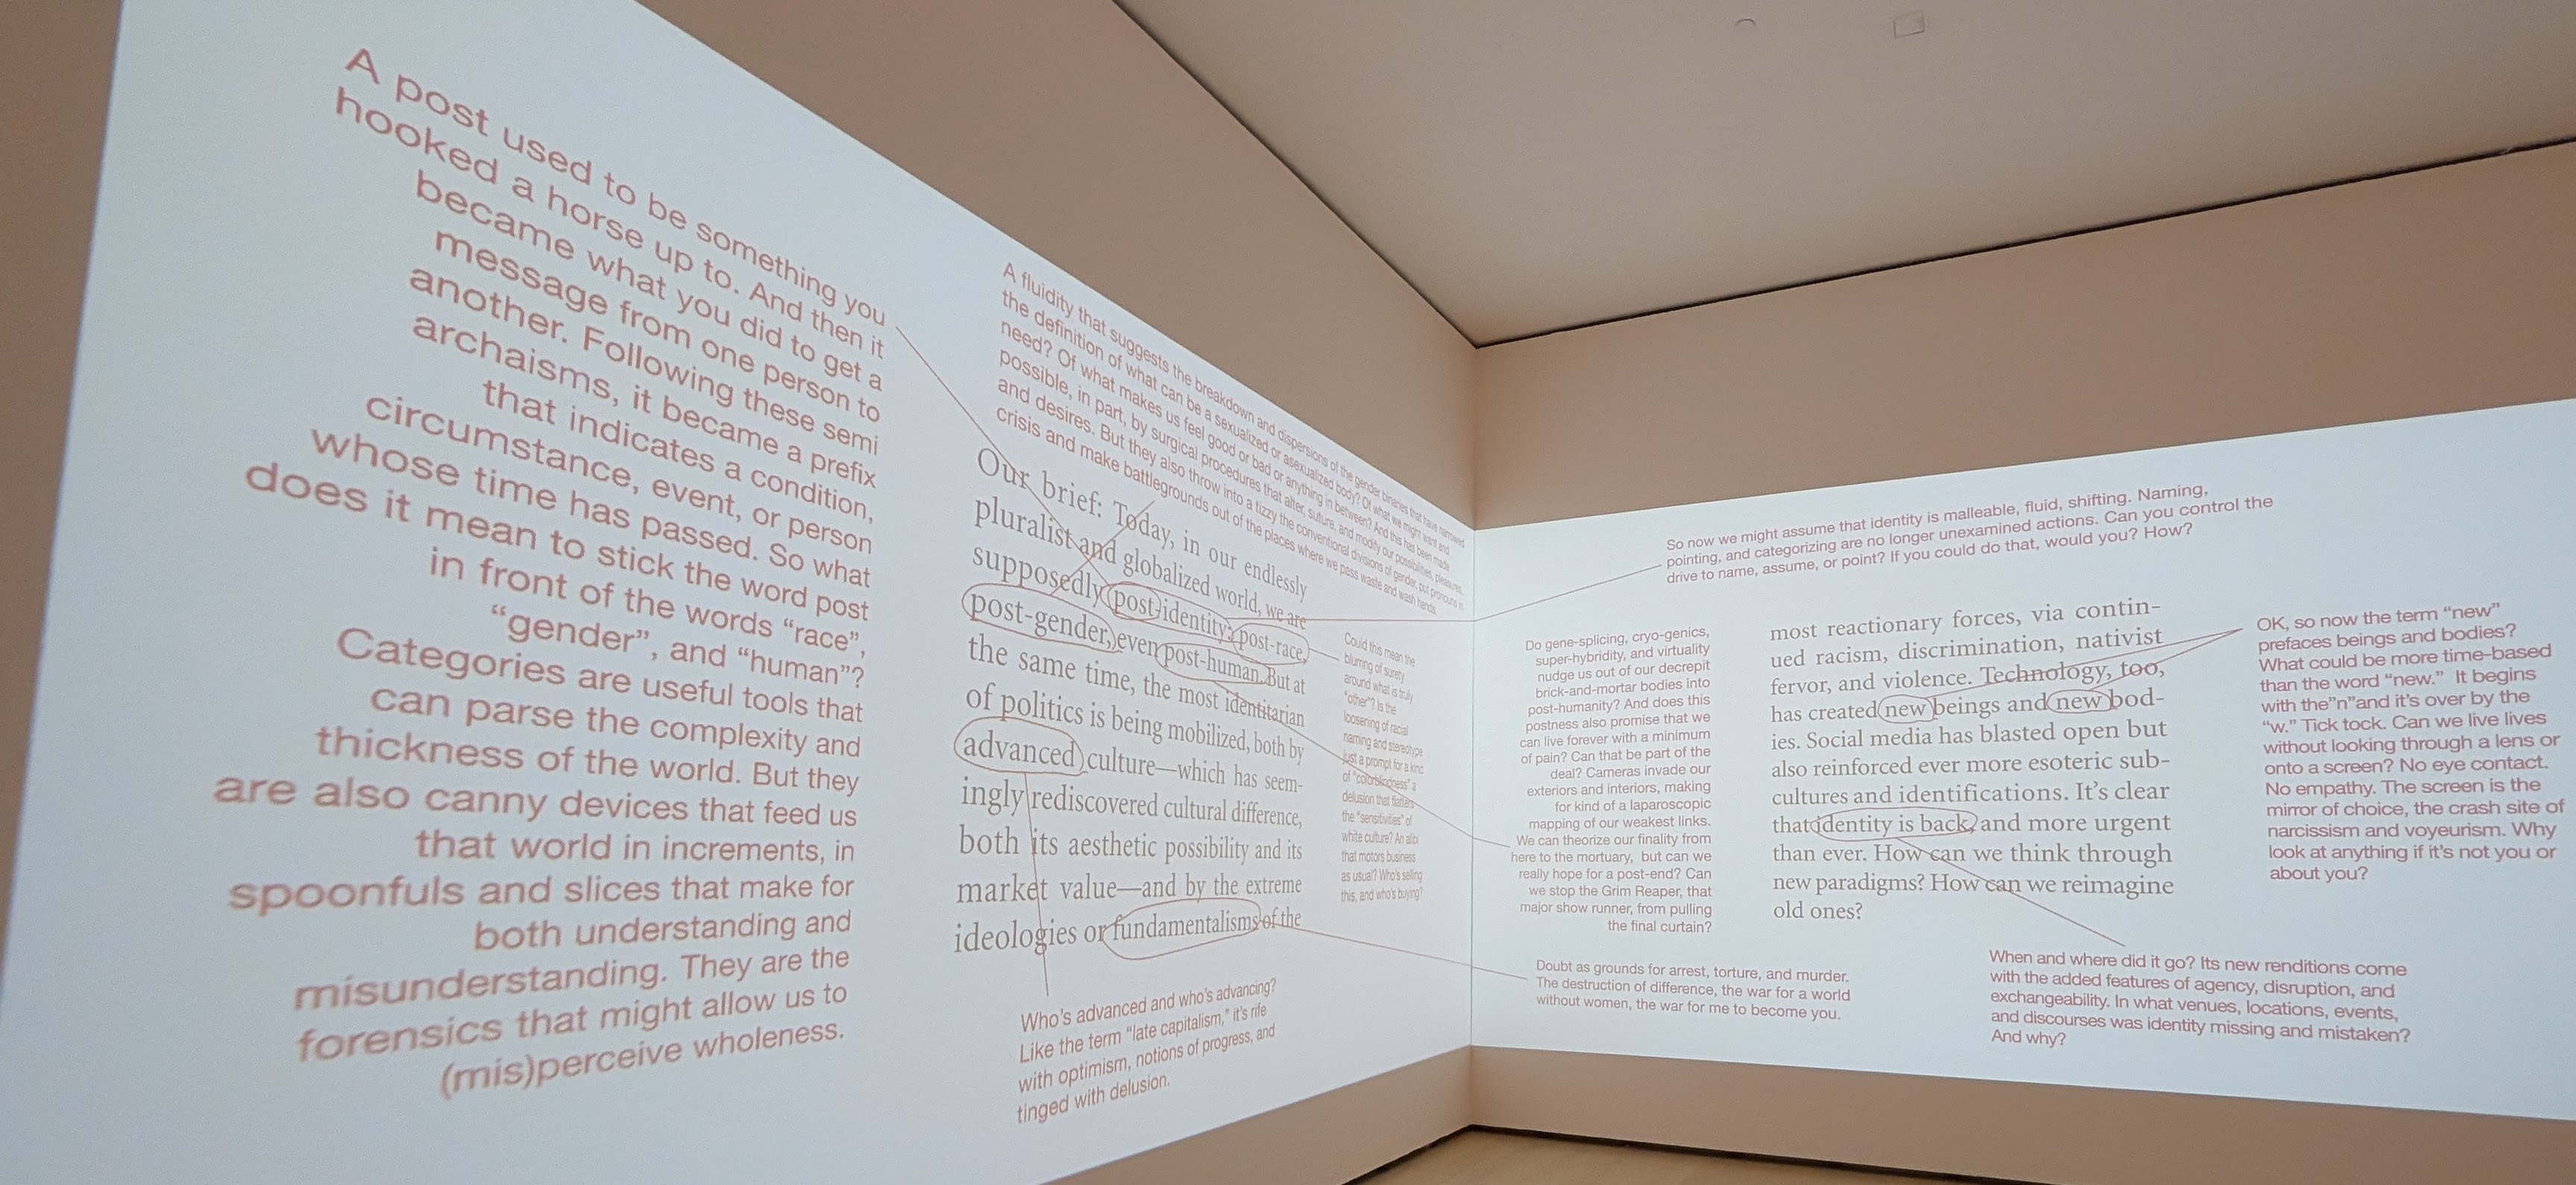 A post used to be something you
hooked a horse up to. And then it
became what you did to get a
message from one person to
another. Following these semi
archaisms, it became a prefix
that indicates a condition,
circumstance, event, or person
whose time has passed. So what
does it mean to stick the word post
in front of the words “race”,
“gender”, and “human”?
Categories are useful tools that
can parse the complexity and
thickness of the world. But they
are also canny devices that feed us
that world in increments, in
spoonfuls and slices that make for
both understanding and
misunderstanding. They are the
forensics that might allow us to
(mis)perceive wholeness.
A fluidity that suggests the breakdown and dispersions of the gender binaries that have narrowed
the definition of what can be a sexualized or asexualized body? Of what we might want and
need? Of what makes us feel good or bad or anything in between? And this has been made
possible, in part, by surgical procedures that alter, suture, and modify our possibilities, pleasures,
and desires. But they also throw into a tizzy the conventional divisions of gender, put pronouns in
crisis and make battlegrounds out of the places where we pass waste and wash hands.
Our brief: Today, in our endlessly
pluralist and globalized world, we are
supposedly post-identity: post-race,
post-gender, even post-human. But at
the same time, the most identitarian
of politics is being mobilized, both by
advanced culture—which has seem-
ingly rediscovered cultural difference,
both its aesthetic possibility and its
market value—and by the extreme
ideologies or fundamentalisms of the
Could this mean the
blurring of surety
around what is truly
“other”? Is the
loosening of racial
naming and stereotype
just a prompt for a kind
of “colorblindness” a
delusion that flatters
the “sensitivities” of
white culture? An alibi
that motors business
as usual? Who’s selling
this, and who’s buying?
Who’s advanced and who’s advancing?
Like the term “late capitalism,” it’s rife
with optimism, notions of progress, and
tinged with delusion.
So now we might assume that identity is malleable, fluid, shifting. Naming,
pointing, and categorizing are no longer unexamined actions. Can you control the
drive to name, assume, or point? If you could do that, would you? How?
Do gene-splicing, cryo-genics,
super-hybridity, and virtuality
nudge us out of our decrepit
brick-and-mortar bodies into
post-humanity? And does this
postness also promise that we
can live forever with a minimum
of pain? Can that be part of the
deal? Cameras invade our
exteriors and interiors, making
for kind of a laparoscopic
mapping of our weakest links.
We can theorize our finality from
here to the mortuary, but can we
really hope for a post-end? Can
we stop the Grim Reaper, that
major show runner, from pulling
the final curtain?
Doubt as grounds for arrest, torture, and murder.
The destruction of difference, the war for a world
without women, the war for me to become you.
most reactionary forces, via contin-
ued racism, discrimination, nativist
fervor, and violence. Technology, too,
has created new beings and new bod-
ies. Social media has blasted open but
also reinforced ever more esoteric sub-
cultures and identifications. It’s clear
that identity is back, and more urgent
than ever. How can we think through
new paradigms? How can we reimagine
old ones?
OK, so now the term “new”
prefaces beings and bodies?
What could be more time-based
than the word “new.” It begins
with the”n”and it’s over by the
“w.” Tick tock. Can we live lives
without looking through a lens or
onto a screen? No eye contact.
No empathy. The screen is the
mirror of choice, the crash site of
narcissism and voyeurism. Why
look at anything if it’s not you or
about you?
When and where did it go? Its new renditions come
with the added features of agency, disruption, and
exchangeability. In what venues, locations, events,
and discourses was identity missing and mistaken?
And why?